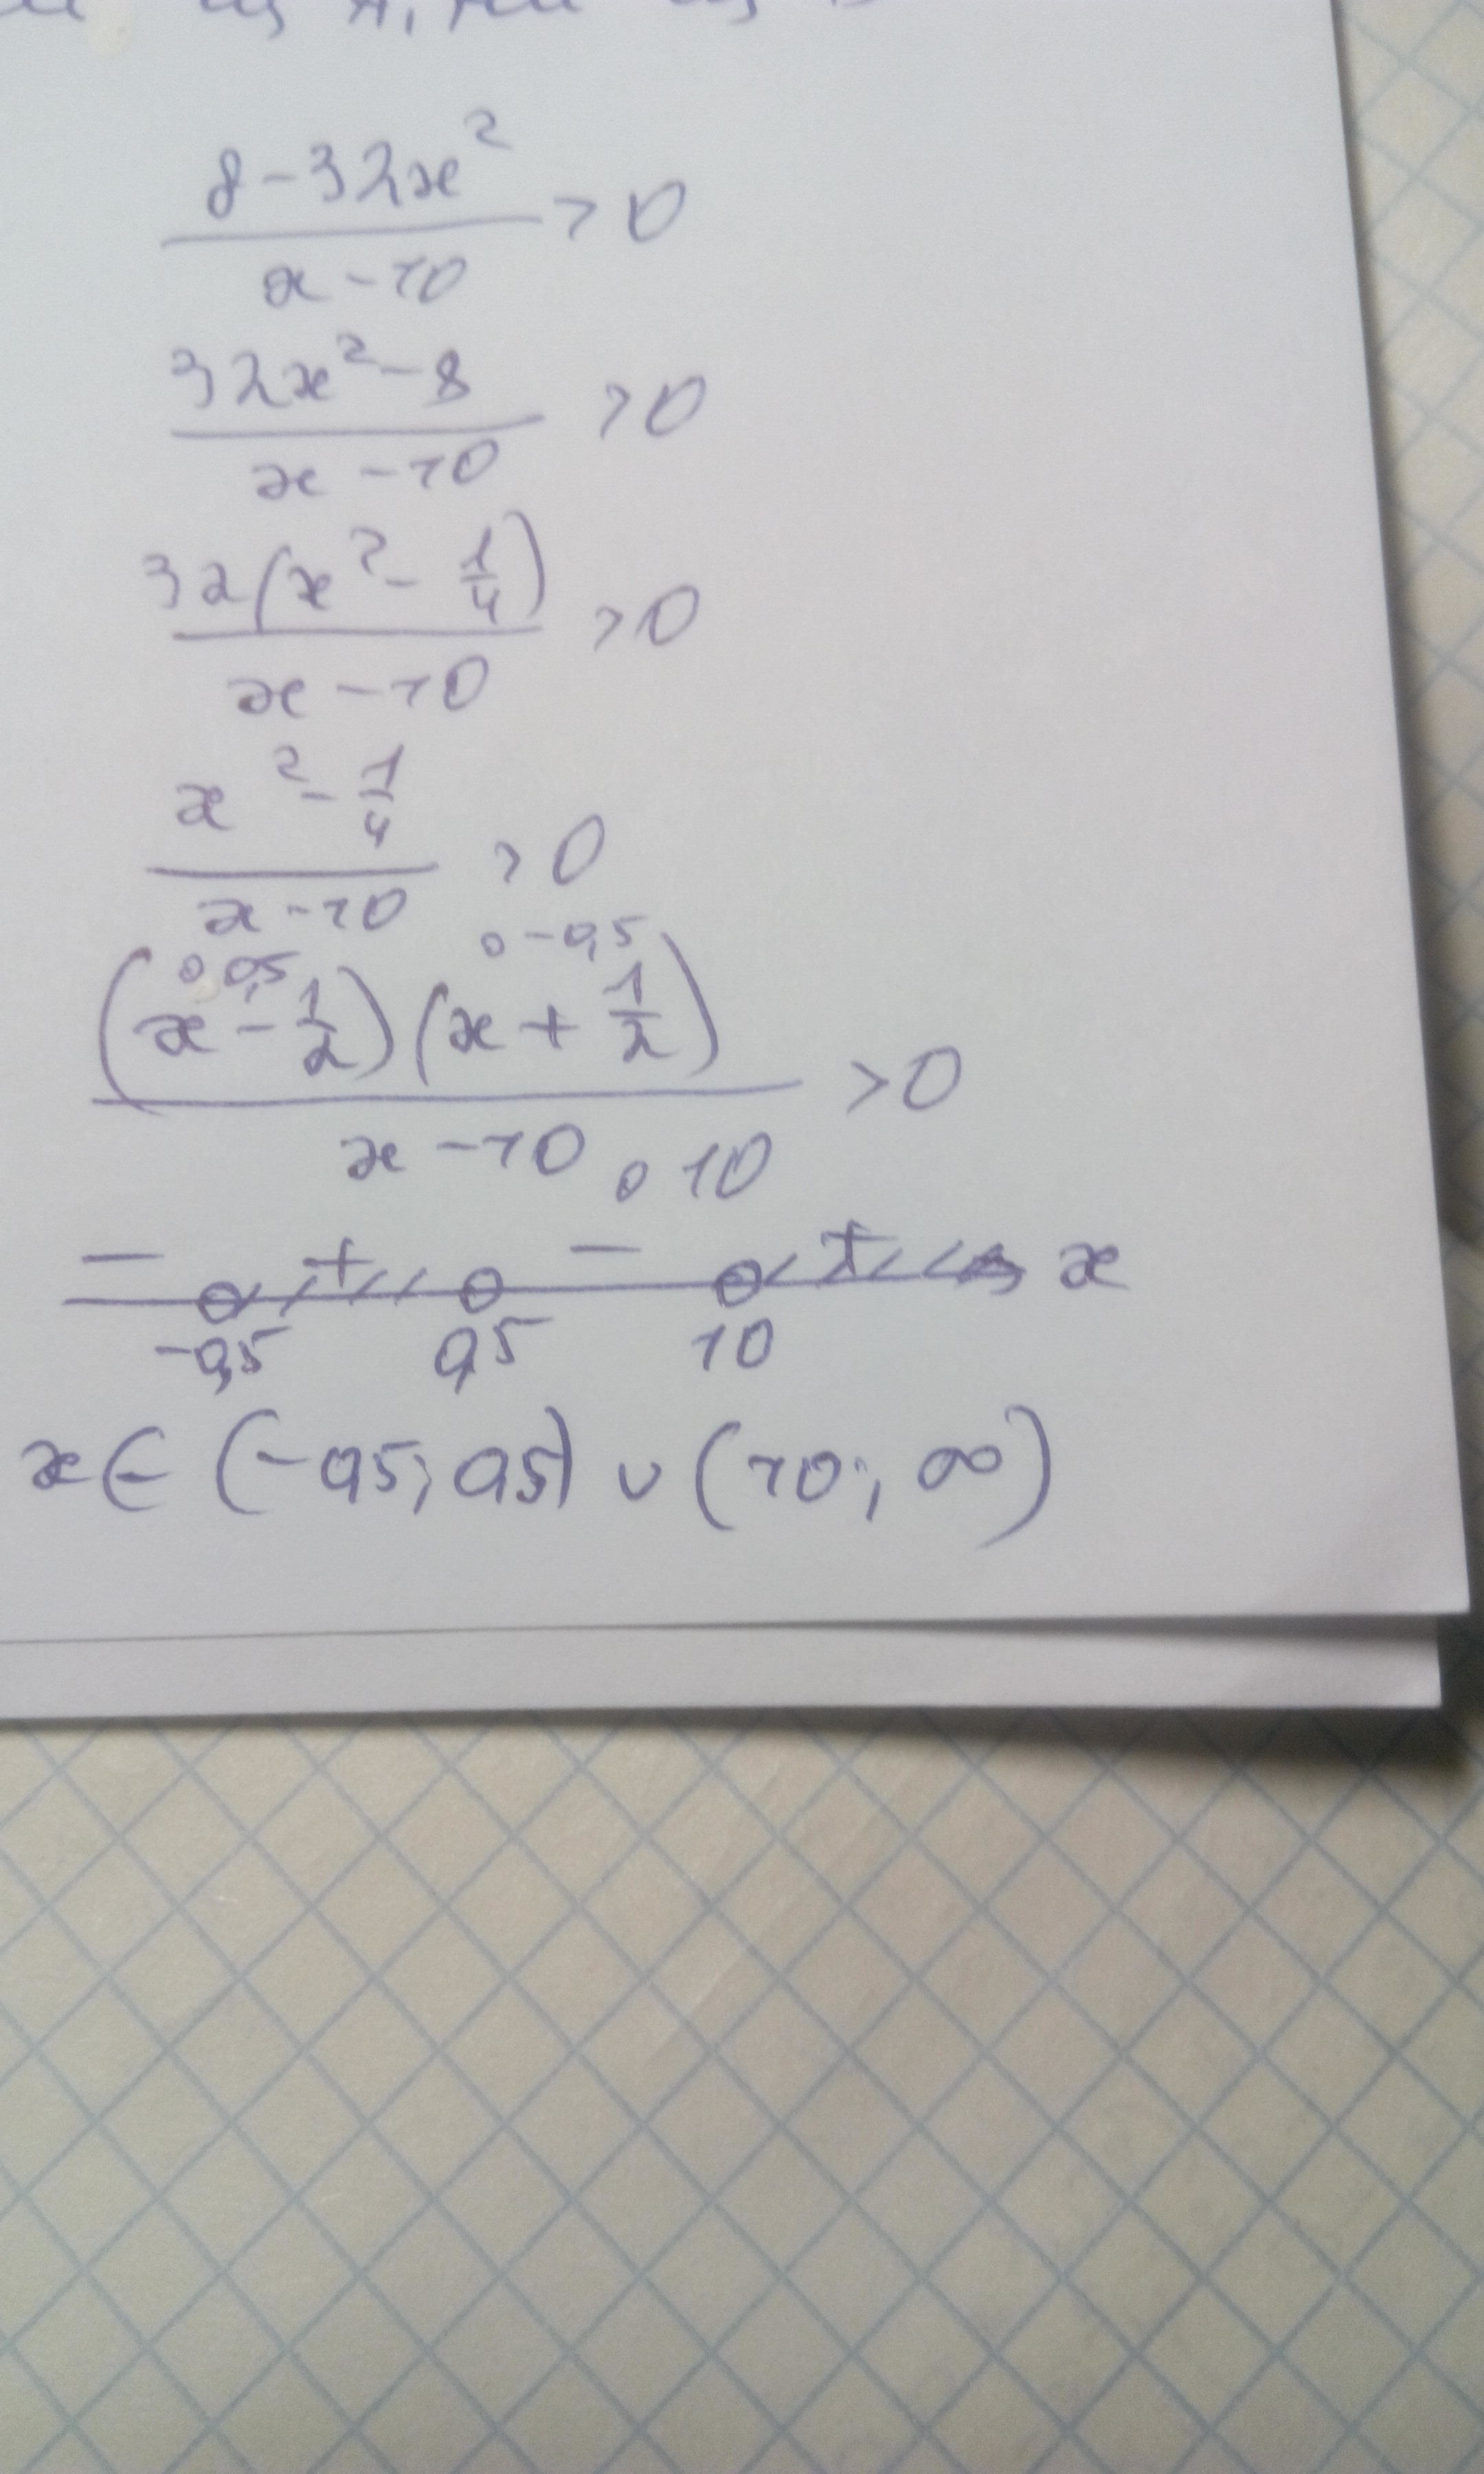 8-32x²
/
x-10 >0
32x²-8
/
x-10 >0
32(x²-1/4)
/
x-10 >0
x²-1/4
/
x-10 >0
0 0,5 0 -0,5
(x-1/2)(x+1/2)
/
x-10 >0
0 10
− + − + x
-0,5 0,5 10
x∈(-0,5; 0,5)∪(10; ∞)